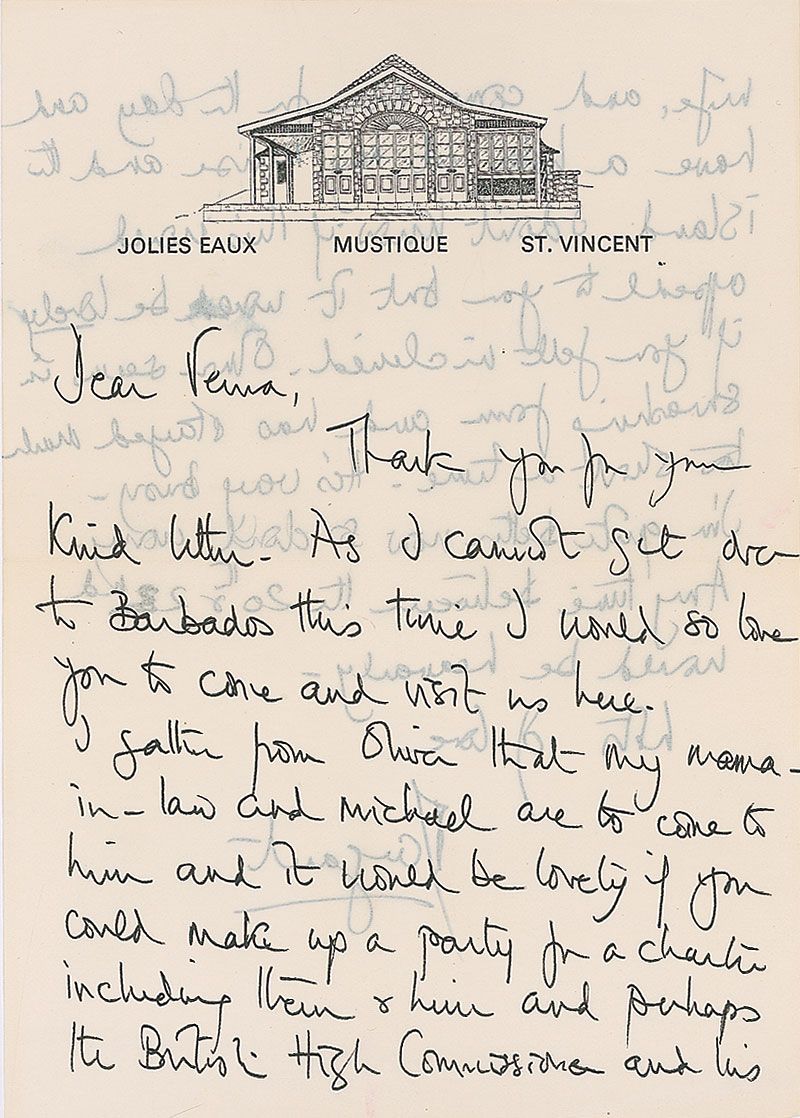 JOLIES EAUX MUSTIQUE ST. VINCENT
Dear Verna,
Thank you for your
kind letter - As I cannot get over
to Barbados this time I would so love
you to come and visit us here.
I gather from Oliver that my mama-
in-law and Michael are to come to
him and it would be lovely if you
could make up a party for a charter
including them & him and perhaps
the British High Commissioner and his